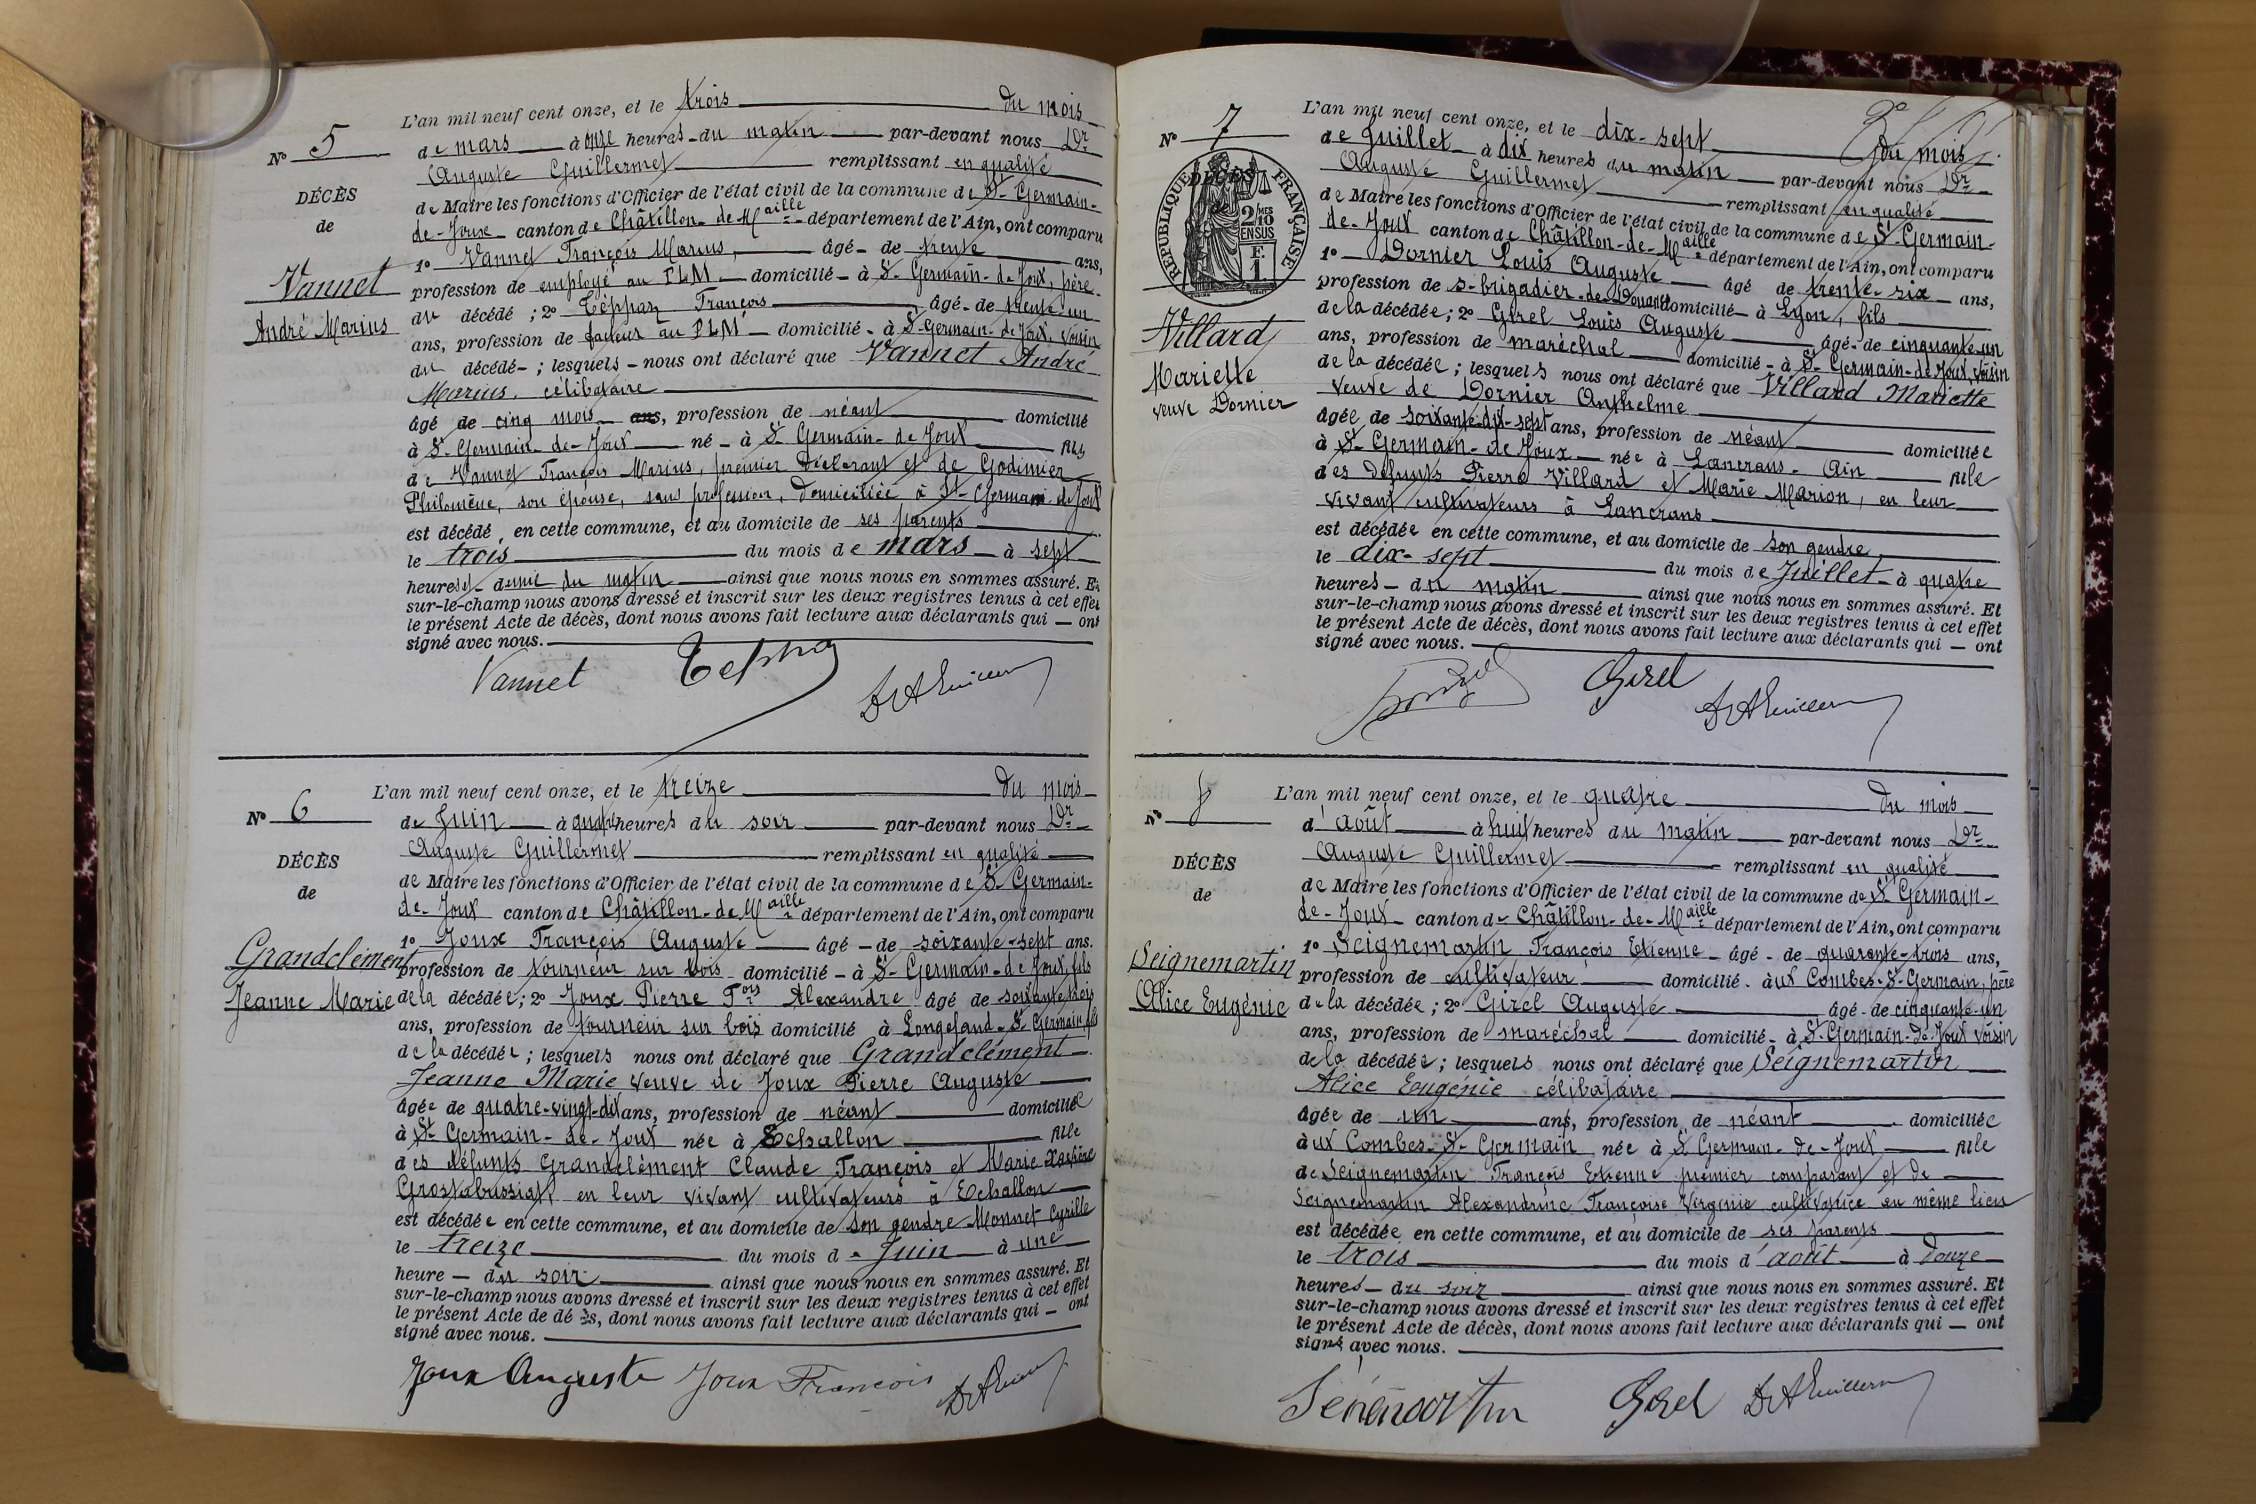 L'an mil neuf cent onze, et le trois du mois
N° 5
de mars à onze heures du matin par-devant nous Dr
Auguste Guillermet remplissant en qualité
DÉCÈS
de Maire les fonctions d'Officier de l'état civil de la commune de St-Germain-
de
de-Joux canton de Châtillon-de-Maille département de l'Ain, ont comparu
1° Vannet François Marius, âgé de trente ans,
Vannet
profession de employé au PLM domicilié à St-Germain-de-Joux, père
du décédé ; 2° Teppaz François âgé de trente-un
André Marius
ans, profession de facteur au PLM domicilié à St-Germain-de-Joux, voisin
du décédé ; lesquels nous ont déclaré que Vannet André
Marius, célibataire
âgé de cinq mois ans, profession de néant domicilié
à St-Germain-de-Joux né à St-Germain-de-Joux fils
de Vannet François Marius, premier déclarant et de Godimier
Philomène, son épouse, sans profession, domiciliée à St-Germain-de-Joux
est décédé en cette commune, et au domicile de ses parents
le trois du mois de mars à sept
heures et demie du matin ainsi que nous nous en sommes assuré. Et
sur-le-champ nous avons dressé et inscrit sur les deux registres tenus à cet effet
le présent Acte de décès, dont nous avons fait lecture aux déclarants qui ont
signé avec nous.
Vannet Teppaz DrAGuillerm
L'an mil neuf cent onze, et le treize du mois
N° 6
de Juin à quatre heures du soir par-devant nous Dr
Auguste Guillermet remplissant en qualité
DÉCÈS
de Maire les fonctions d'Officier de l'état civil de la commune de St-Germain-
de
de-Joux canton de Châtillon-de-Maille département de l'Ain, ont comparu
1° Joux François Auguste âgé de soixante-sept ans.
Grandclément
profession de tourneur sur bois domicilié à St-Germain-de-Joux, fils
Jeanne Marie
de la décédée ; 2° Joux Pierre Fois Alexandre âgé de soixante-trois
ans, profession de tourneur sur bois domicilié à Longefand-St Germain, fils
de la décédée ; lesquels nous ont déclaré que Grandclément
Jeanne Marie veuve de Joux Pierre Auguste
âgée de quatre-vingt-dix ans, profession de néant domiciliée
à St-Germain-de-Joux née à Echallon fille
des défunts Grandclément Claude François et Marie
en leur vivant cultivateurs à Echallon
est décédée en cette commune, et au domicile de son gendre Monnet Cyrille
le treize du mois de Juin à une
heure du soir ainsi que nous nous en sommes assuré. Et
sur-le-champ nous avons dressé et inscrit sur les deux registres tenus à cet effet
le présent Acte de décès, dont nous avons fait lecture aux déclarants qui ont
signé avec nous.
Joux Auguste Joux François
L'an mil neuf cent onze, et le dix-sept du mois
N° 7
de Juillet à dix heures du matin par-devant nous Dr
Auguste Guillermet remplissant en qualité
RÉPUBLIQUE FRANÇAISE
DÉCÈS
2/10 MES EN SUS
F. 1
de Maire les fonctions d'Officier de l'état civil de la commune de St-Germain-
de-Joux canton de Châtillon-de-Maille département de l'Ain, ont comparu
1° Dornier Louis Auguste âgé de trente-six ans,
profession de s-brigadier-de-Douanes domicilié à Lyon, fils
Villard
de la décédée ; 2° Girel Louis Auguste âgé de cinquante-un
ans, profession de maréchal domicilié à St-Germain-de-Joux, voisin
Mariette
de la décédée ; lesquels nous ont déclaré que Villard Mariette
veuve Dornier
veuve de Dornier Anthelme
âgée de soixante-dix-sept ans, profession de néant domiciliée
à St-Germain-de-Joux née à Lancrans-Ain fille
des défunts Pierre Villard et Marie Marion, en leur
vivant cultivateurs à Lancrans
est décédée en cette commune, et au domicile de son gendre
le dix-sept du mois de Juillet à quatre
heures du matin ainsi que nous nous en sommes assuré. Et
sur-le-champ nous avons dressé et inscrit sur les deux registres tenus à cet effet
le présent Acte de décès, dont nous avons fait lecture aux déclarants qui ont
signé avec nous.
Girel DrAGuillerm
L'an mil neuf cent onze, et le quatre du mois
N° 8
d'août à huit heures du matin par-devant nous Dr
Auguste Guillermet remplissant en qualité
DÉCÈS
de Maire les fonctions d'Officier de l'état civil de la commune de St Germain-
de
de-Joux canton de Châtillon-de-Maille département de l'Ain, ont comparu
1° Seignemartin François Etienne âgé de quarante-trois ans,
Seignemartin
profession de cultivateur domicilié aux Combes-St-Germain, père
Alice Eugénie
de la décédée ; 2° Girel Auguste âgé de cinquante-un
ans, profession de maréchal domicilié à St-Germain-de-Joux voisin
de la décédée ; lesquels nous ont déclaré que Seignemartin
Alice Eugénie célibataire
âgée de un ans, profession de néant domiciliée
aux Combes-St-Germain née à St Germain-de-Joux fille
de Seignemartin François Etienne premier comparant et de
Seignemartin Alexandrine Françoise Virginie cultivatrice au même lieu
est décédée en cette commune, et au domicile de ses parents
le trois du mois d'août à douze
heures du soir ainsi que nous nous en sommes assuré. Et
sur-le-champ nous avons dressé et inscrit sur les deux registres tenus à cet effet
le présent Acte de décès, dont nous avons fait lecture aux déclarants qui ont
signé avec nous.
Girel DrAGuillerm